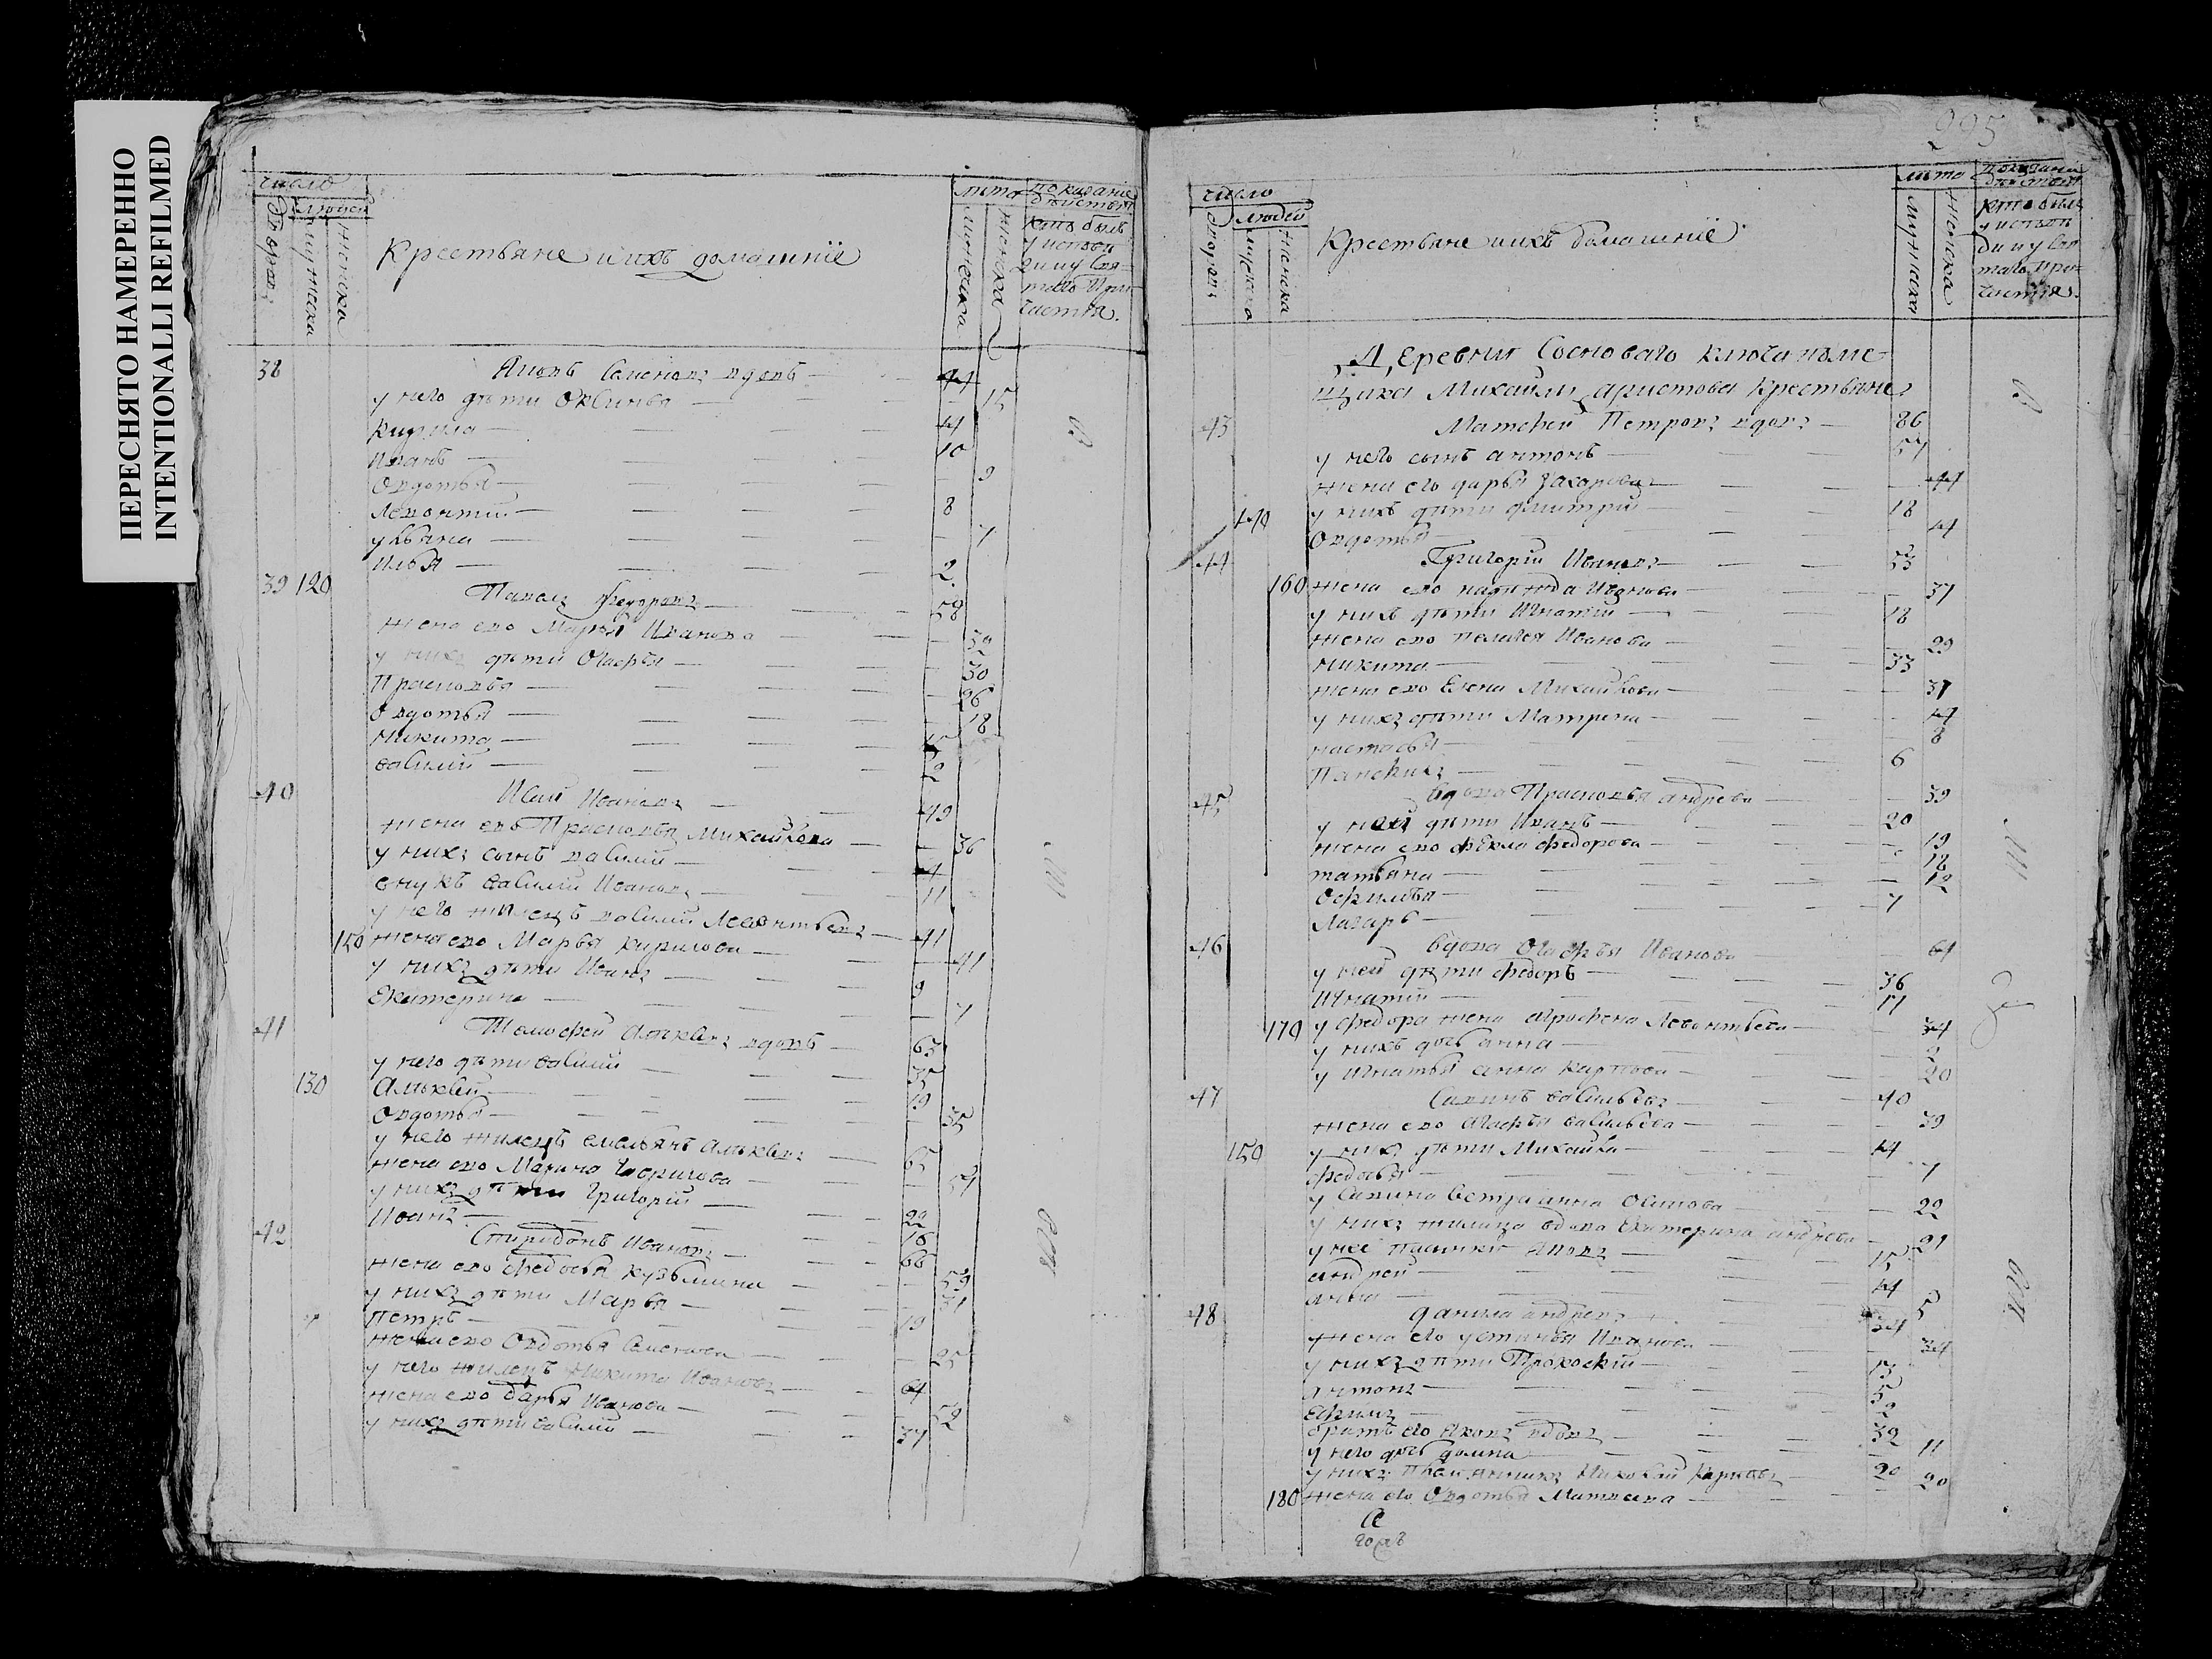 ПЕРЕСНЯТО НАМЕРЕННО
INTENTIONALLI REFILMED
число
людей
дворовъ
мужеска
женска
Крестьяне и ихъ домашнїе
лѣта
мужеска
женска
показанїе
действа
кто былъ
у исповѣ
ди и у свя
таго При
частія.
38 Яковъ Семеновъ вдовъ — 44
у него дѣти Оксинья — 15
Кирила — 14
Иванъ — 10
Овдотья — 9
Левонтий — 8
ульяна — 7
Илья — 2
39 120 Павелъ Федоровъ — 58
жена ево Марья Иванова
у нихъ дѣти Огафья — 30
Прасковья — 26
Овдотья — 18
Никита — 15
василий
40 Исай Ивановъ — 49
жена ево Прасковья Михайлова — 36
у нихъ сынъ василий
внукъ василий Ивановъ — 11
у него жилецъ василий Левонтьевъ — 41
жена ево Марья кирилова — 41
у нихъ дѣти Иванъ — 9
Екатерина — 7
41 Тимофей Алѣквевъ вдовъ — 63
у него дѣти василий — 35
130 Алѣквей — 19
Овдотья — 35
у него жилецъ емельянъ Алѣквевъ — 65
жена ево Марина — 57
у нихъ дѣти Григорїй — 22
Иванъ — 16
42 Спиридонъ Ивановъ — 66
жена ево Федосья кузьмина — 59
у нихъ дѣти Марья — 31
Петръ — 19
жена ево Овдотья Семенова — 25
у него жилецъ Никита Ивановъ — 64
жена ево дарья Иванова — 52
у нихъ дѣти василий — 37
995
число
людей
дворовъ
мужеска
женска
Крестьяне и ихъ домашнїе
лѣта
мужеска
женска
показанїе
действа
кто былъ
у исповѣ
ди и у свя
таго При
частія.
Деревни Сосноваго ключа поме
щика Михайлы Аристова Крестьяне
43 Матфей Петровъ вдовъ — 86
у него сынъ антонъ — 57
жена его дарья Захарова — 44
140 у нихъ дѣти дмитрий — 18
Овдотья — 14
44 Григорїй Ивановъ — 53
160 жена ево надежда Иванова — 37
у нихъ дѣти Игнатий — 18
жена ево пелагея Иванова — 29
никита — 33
жена ево Елена Михайлова — 31
у нихъ дѣти Матрена — 14
настасья — 8
Панфилъ — 6
45 вдова Прасковья андрева — 39
у нихъ дѣти Иванъ — 20
жена ево фекла федорова — 19
татьяна — 18
Офимья — 12
Лазарь — 7
46 вдова Огафья Иванова — 64
у ней дѣти федоръ — 36
Игнатий — 17
170 у федора жена агрофена Левонтьева — 34
у нихъ дочь анна
у Игнатья анна карпова — 20
47 Савинъ васильевъ — 40
жена ево Агафья васильева — 39
150 у нихъ дѣти Михайла — 14
федосья — 7
у Савина сестра анна Осипова — 22
у нихъ жилица вдова Екатерина андрева — 21
у неё пасынки Яковъ — 15
андрей — 14
анна — 5
48 данила андревъ — 34
жена его устинья Иванова — 34
у нихъ дѣти Прокофїй — 13
антонъ — 5
Ефимъ — 2
братъ его Яковъ вдовъ — 32
у него дочь домна — 11
у нихъ племянникъ Николай Карповъ — 20
180 жена его Овдотья Матвеева — 20